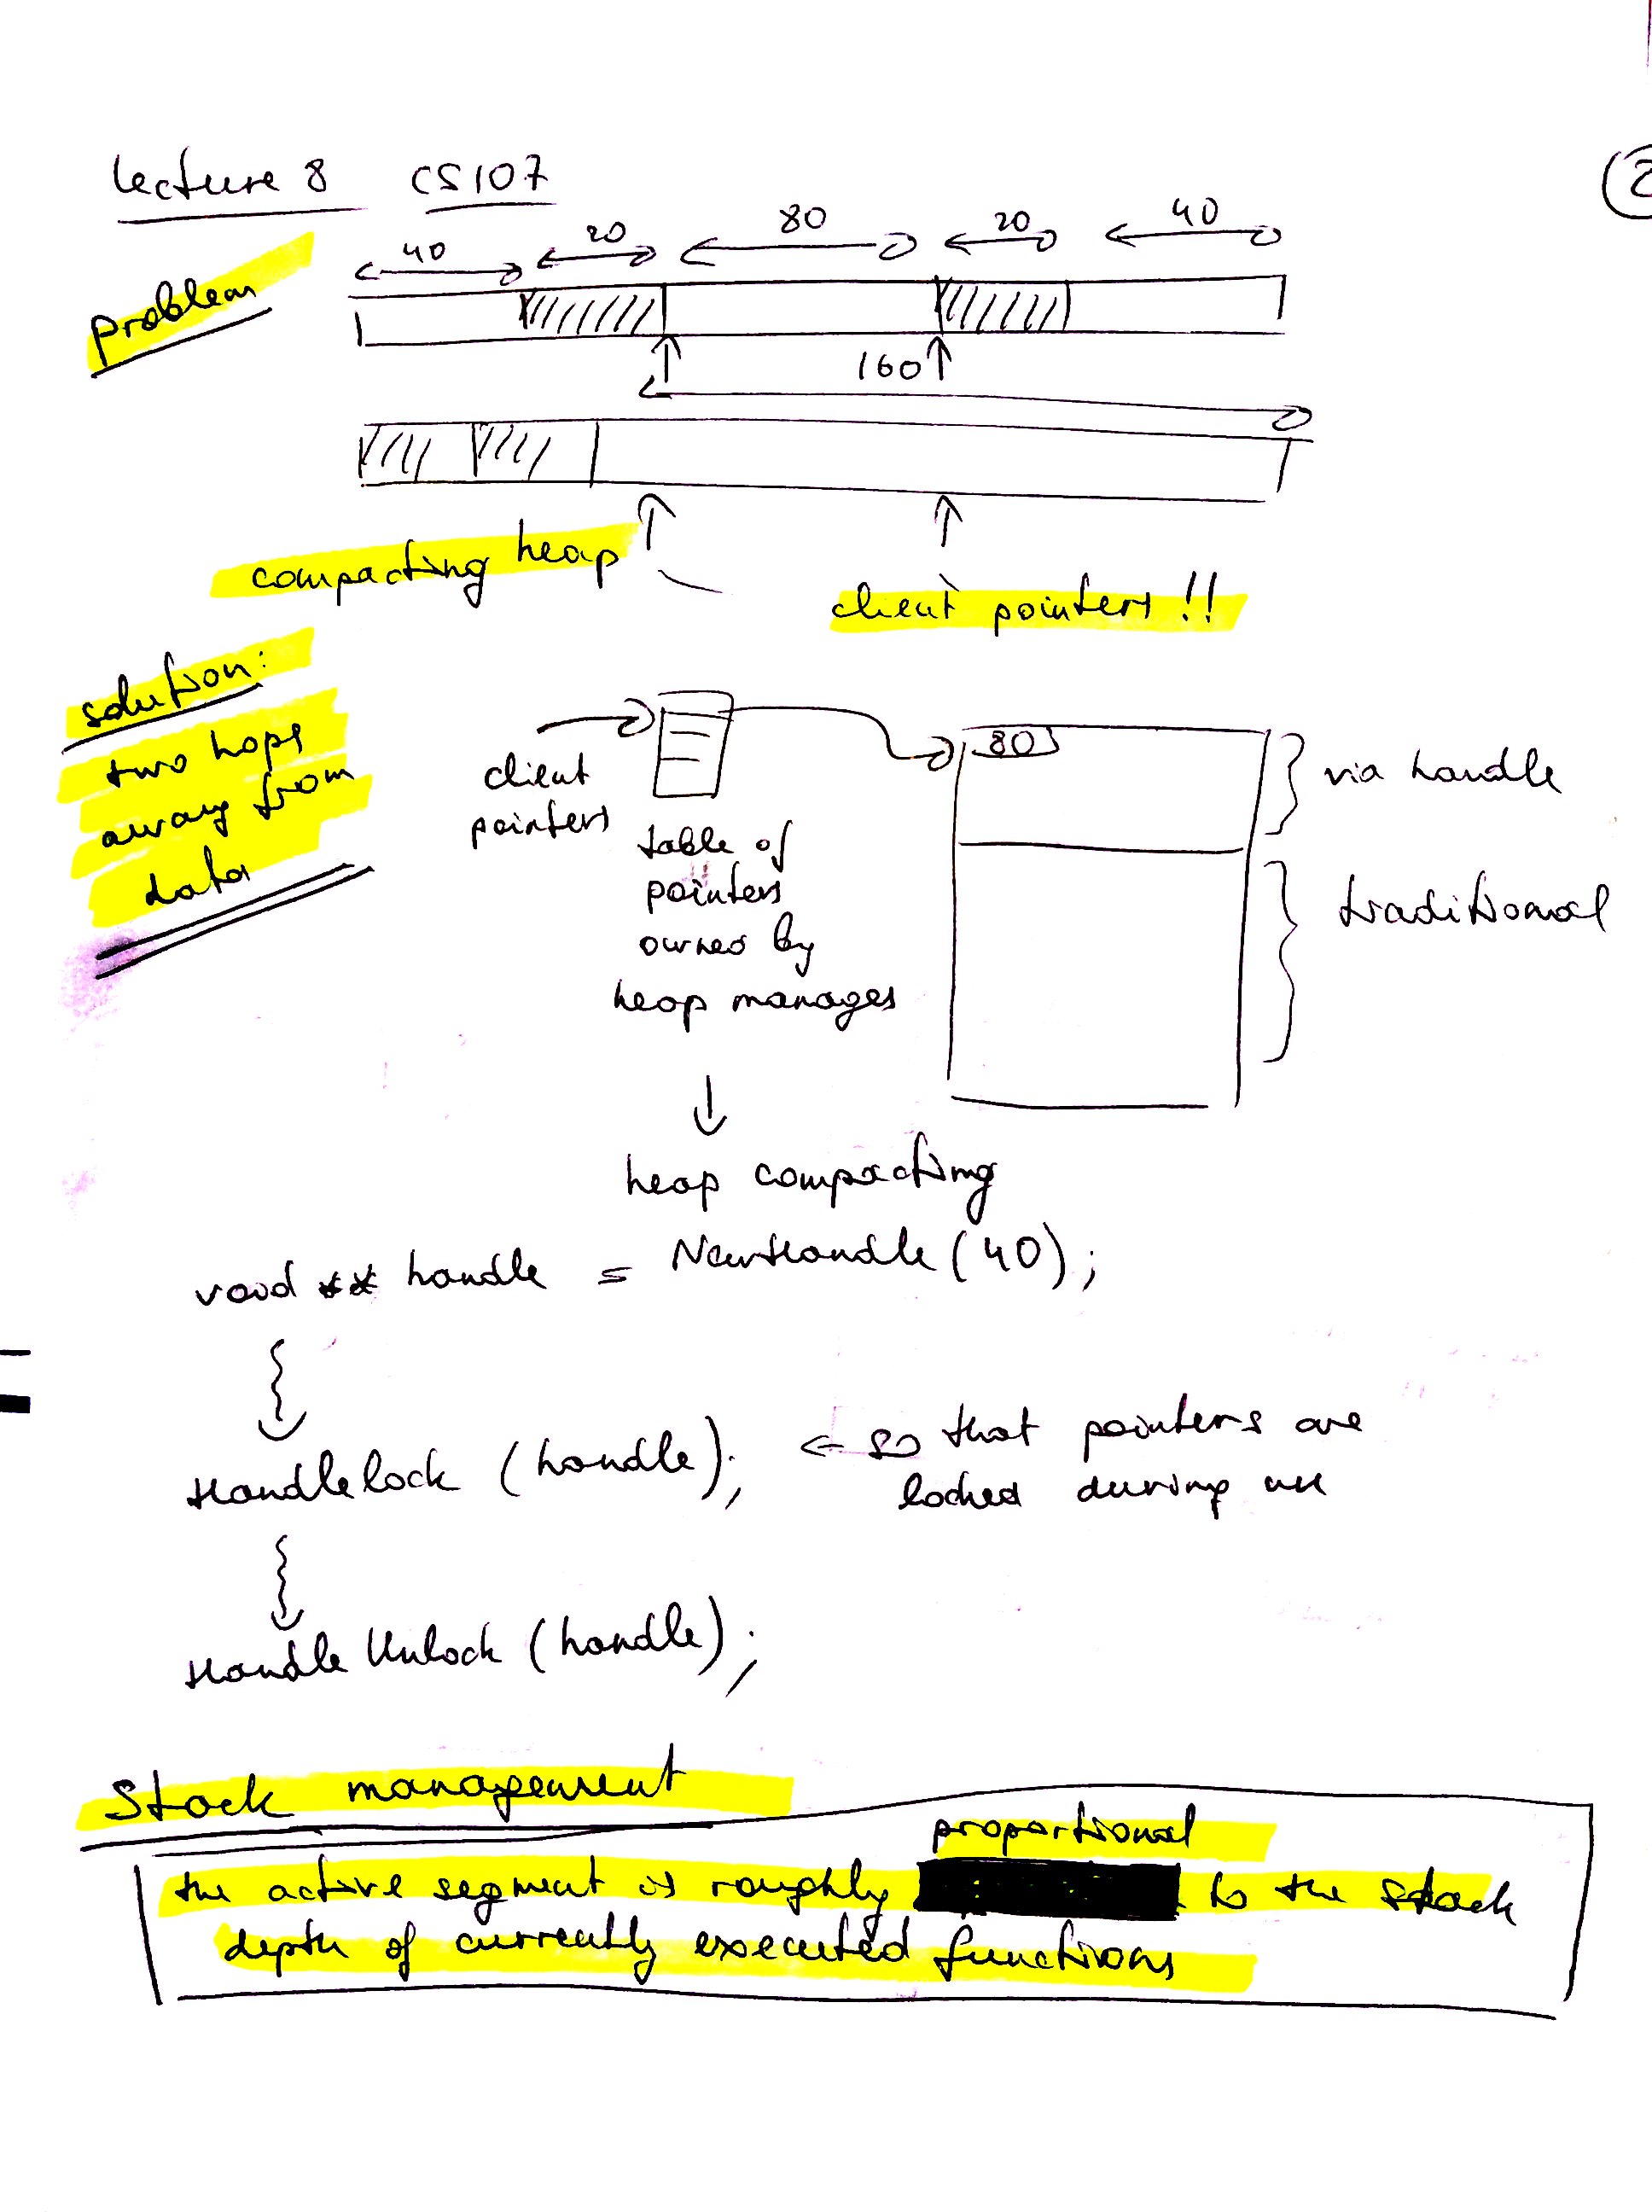 lecture 8 CS107
2
40 20 80 20 40
Problem
160
compacting heap
client pointers !!
solution:
two hops
away from
data
client
pointers
table of
pointers
owned by
heap manages
80
via handle
traditional
heap compacting
void ** handle = NewHandle (40);
Handlelock (handle);
← so that pointers are
locked during use
Handle Unlock (handle);
Stack management
proportional
the active segment is roughly to the stack
depth of currently executed functions